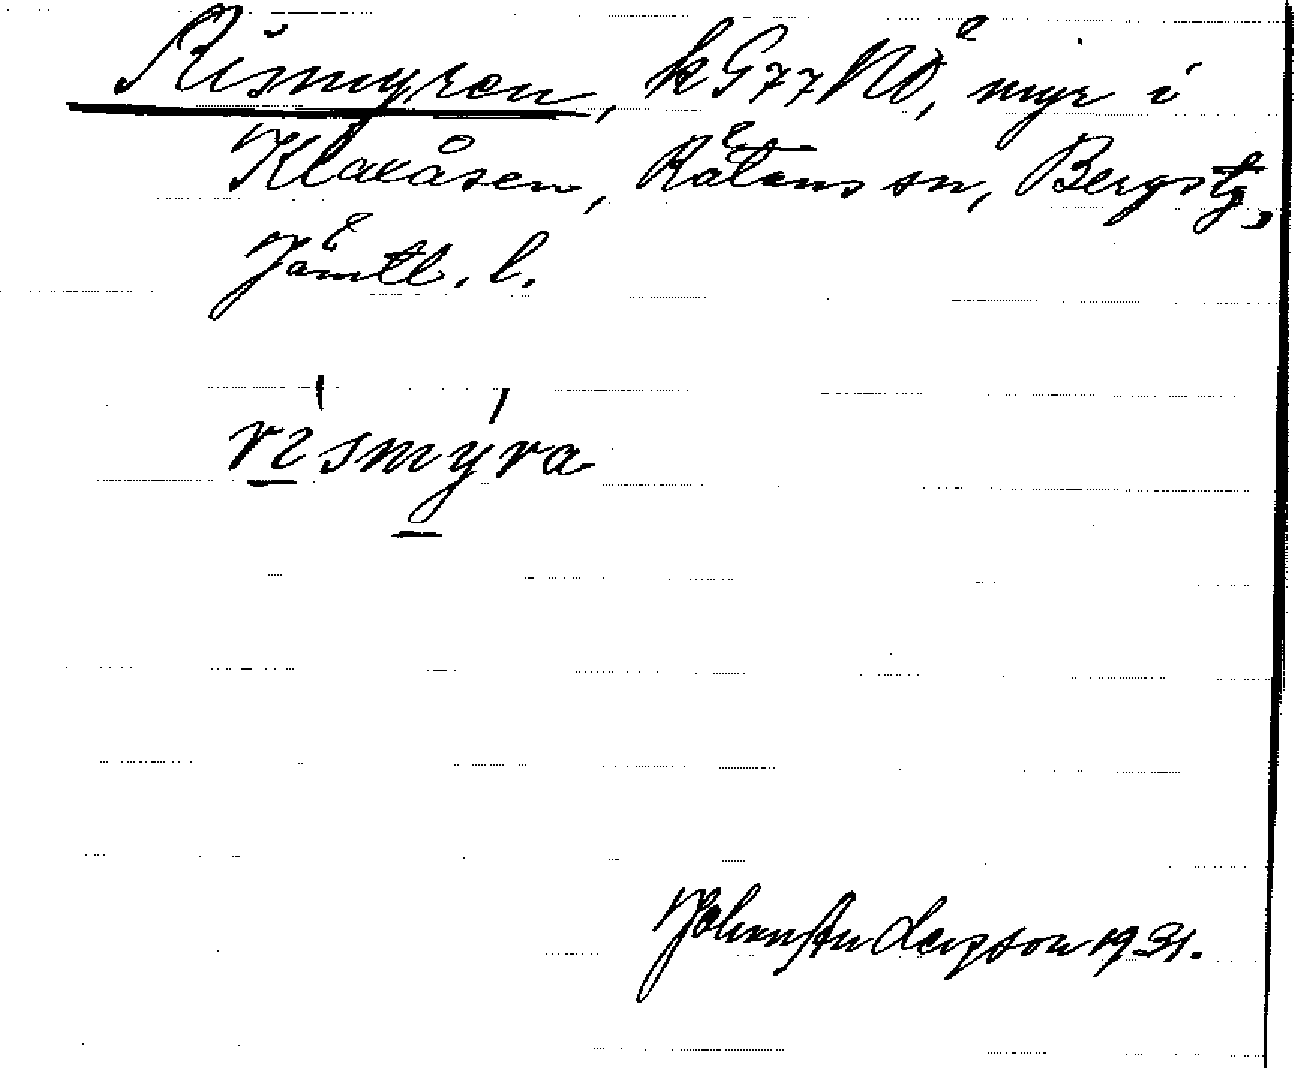 Rismyren, k G77 NO, myr i
Klaxåsen, Rätans sn, Bergs tg,
Jämtl. l.
rismyra
Johan Anderson 1931.